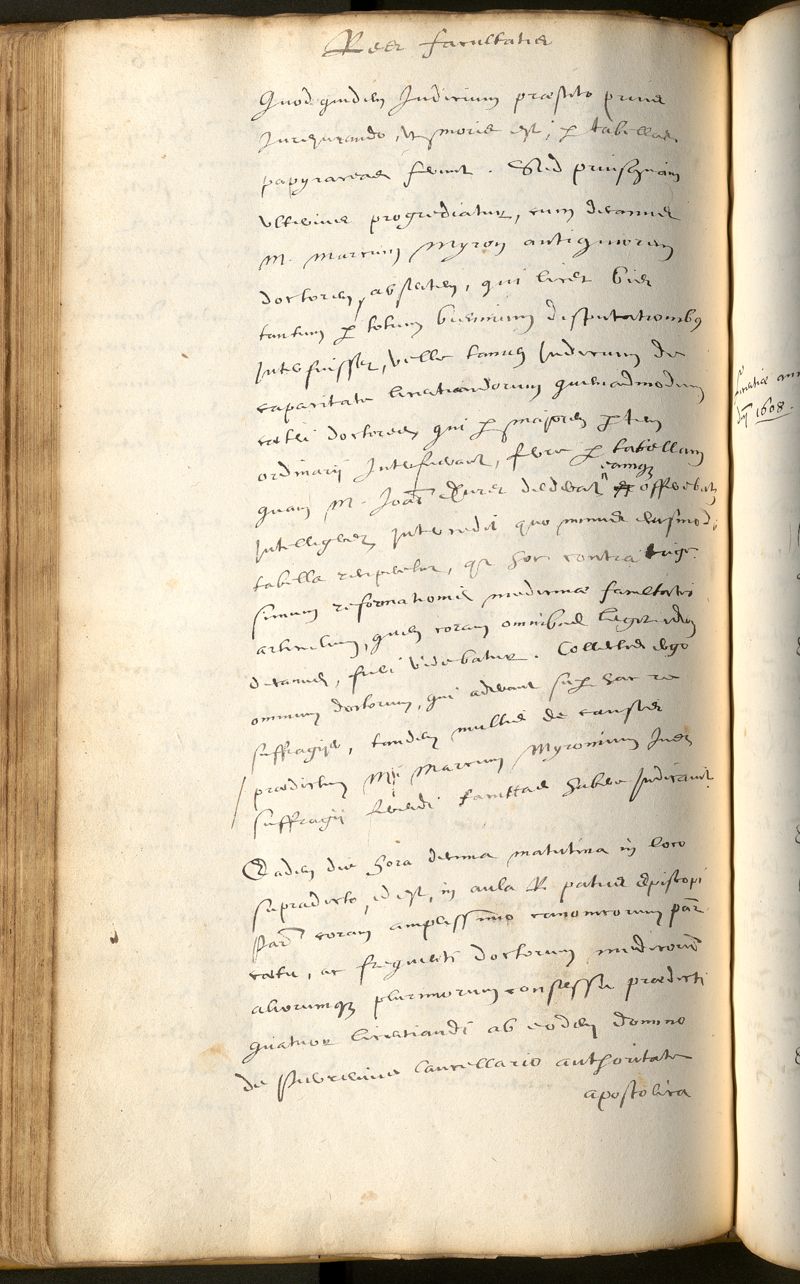 Res facultatis
Quodquidem Judicium præstito prius
Jurejurando, ut moris est, p tabellas
papyraceas ferunt. Sed priusquam
ulterius progrediatur, cum decanus
M. Marcum Myron antiquiorem
doctorem, absentem, qui licet bis
tantum p totum biennium disputationibus
Interfuisset, velle tamen Judicium de
capacitate licentiandorum quemadmodum
cæteri doctores qui p majorem p tem
ordinarii Interfuerant, ferre p tabellam
quam M. Joan dederat eamq offerebat
Intelligeret Intercedit quo minus eiusmodi
tabella reciperetur, qr hoc contra trige
simum reformationis medicinæ facultatis
articulum, quem coram omnibus legit idem
decanus, fieri videbatur. Collectis ergo
omnium doctorum, qui aderant sup hac re
suffragijs, tandem multis de causis
prædictum Mrū Marcum Myronium Jus
suffragij ferendi facultas habere Judicavit
Eadem die hora decima matutina in loco
supradicto, id est, in aula R. patris Episcopi
Par coram amplissimo canonicorum par
cœtu, ac frequenti doctorum medicorum
aliorumq plurimorum consessu prædicti
quatuor licentiandi ab eodem domino
de cancellario authoritate
apostolica
anno
dnj 1608.